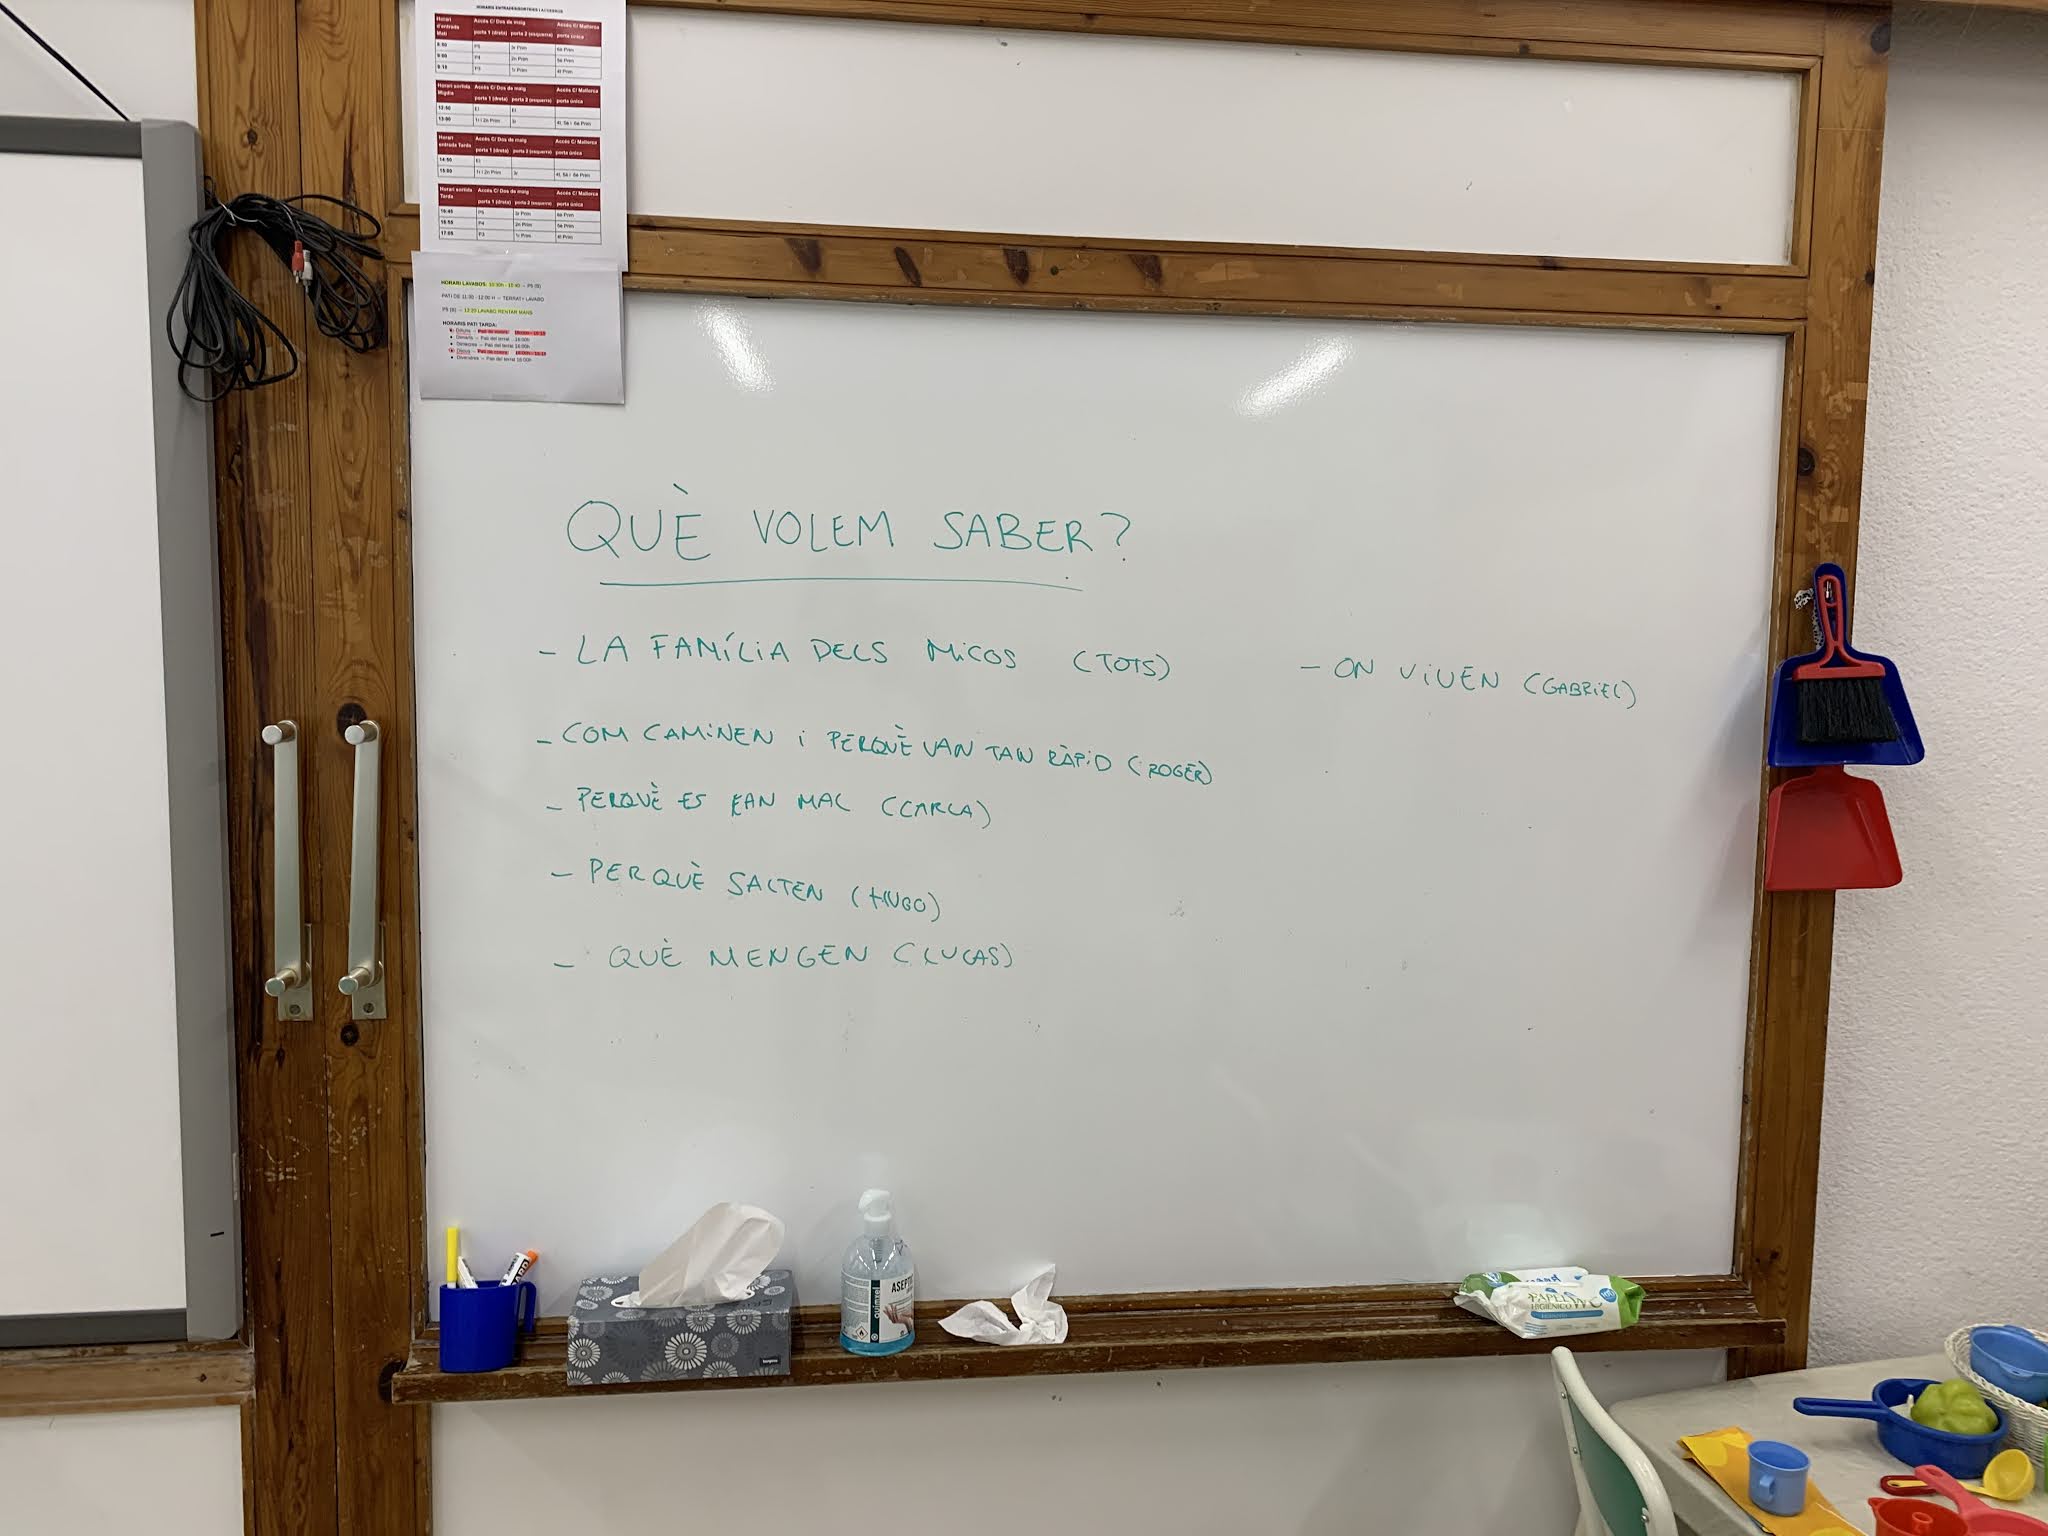 HORARIS ENTRADES/SORTIDES I ACCESSOS
Horari d'entrada Matí Accés C/ Dos de maig porta 1 (dreta) porta 2 (esquerra) Accés C/ Mallorca porta única
8:50 P5 3r Prim 6è Prim
9:00 P4 2n Prim 5è Prim
9:10 P3 1r Prim 4t Prim
Horari sortida Migdia Accés C/ Dos de maig porta 1 (dreta) porta 2 (esquerra) Accés C/ Mallorca porta única
12:50 EI EI
13:00 1r i 2n Prim 3r 4t, 5è i 6è Prim
Horari entrada Tarda Accés C/ Dos de maig porta 1 (dreta) porta 2 (esquerra) Accés C/ Mallorca porta única
14:50 EI
15:00 1r i 2n Prim 3r 4t, 5è i 6è Prim
Horari sortida Tarda Accés C/ Dos de maig porta 1 (dreta) porta 2 (esquerra) Accés C/ Mallorca porta única
16:45 P5 3r Prim 6è Prim
16:55 P4 2n Prim 5è Prim
17:05 P3 1r Prim 4t Prim
HORARI LAVABOS: P5 (B)
PATI DE 11:30 - 12:00 H – TERRAT+ LAVABO
P5 (B) – 12:20 LAVABO RENTAR MANS
HORARIS PATI TARDA:
Dilluns – Pati de
Dimarts – Pati del terrat 16:00h
Dimecres – Pati del terrat 16:00h
Dijous – Pati de
Divendres – Pati del terrat 16:00h
QUÈ VOLEM SABER?
- LA FAMÍLIA DELS MICOS (TOTS)
- COM CAMINEN I PERQUÈ VAN TAN RÀPID (ROGER)
- PERQUÈ ES FAN MAL (CARLA)
- PERQUÈ SALTEN (HUGO)
- QUÈ MENGEN (LUCAS)
- ON VIUEN (GABRIEL)
ASEPT
quimxel
PAPEL WC
HIGIÉNICO